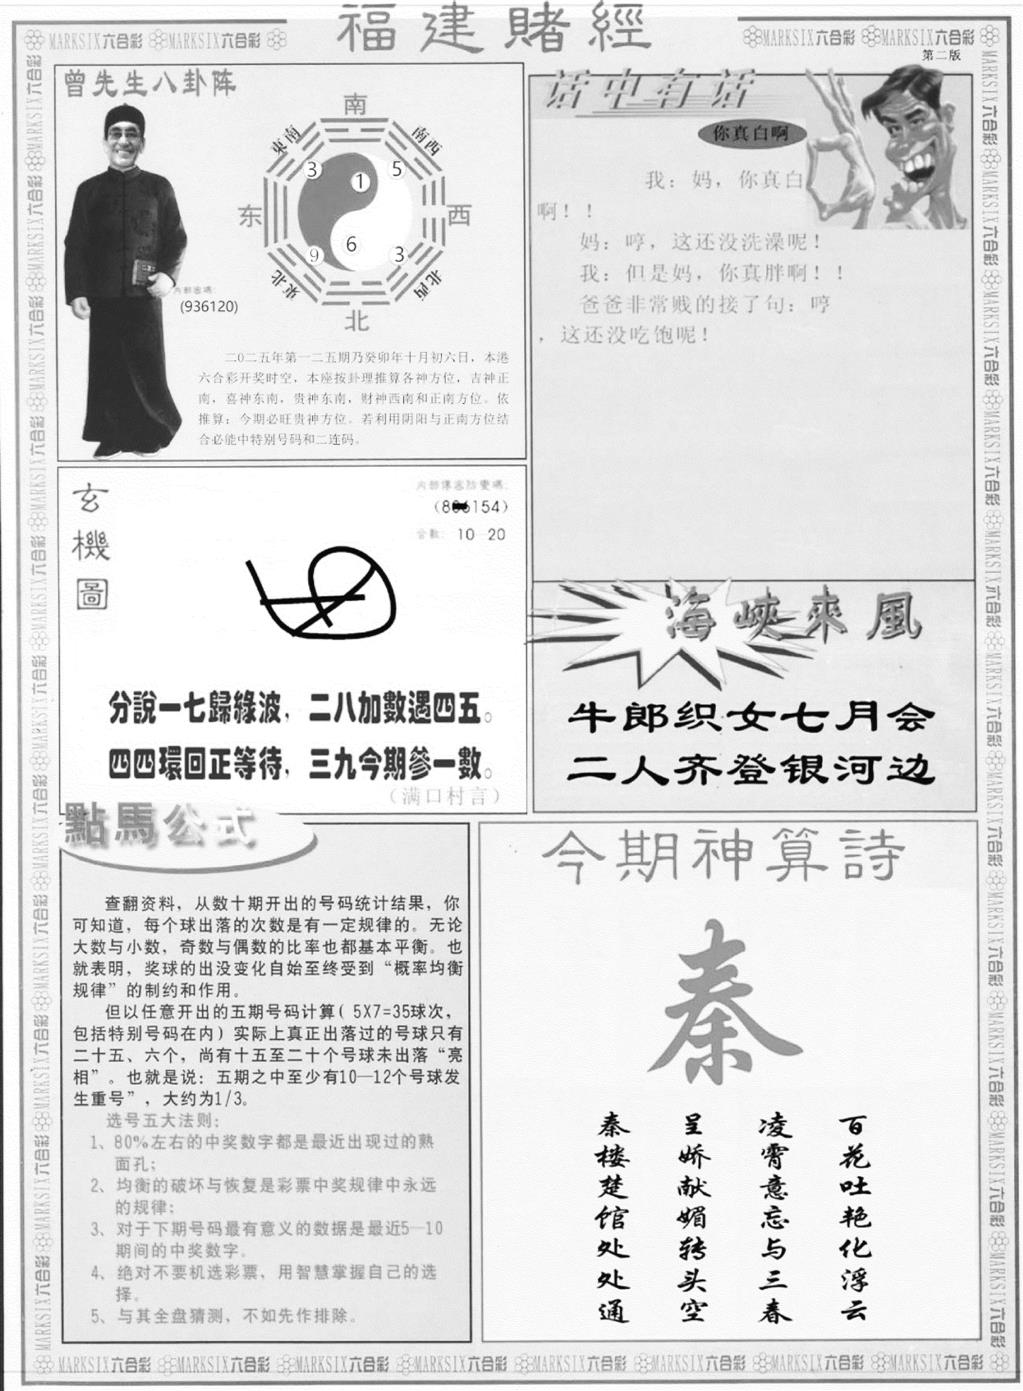 福建賭經
MARKSIX六合彩 MARKSIX六合彩
MARKSIX六合彩 MARKSIX六合彩
第二版
曾先生八卦阵
南
東南
南西
东
西
東北
北西
北
3
5
1
6
9
3
内部密碼:
(936120)
二〇二五年第一二五期乃癸卯年十月初六日，本港
六合彩开奖时空，本座按卦理推算各神方位，吉神正
南，喜神东南，贵神东南，财神西南和正南方位。依
推算：今期必旺贵神方位。若利用阴阳与正南方位结
合必能中特别号码和二连码。
话中有话
你真白啊
我：妈，你真白
啊！！
妈：哼，这还没洗澡呢！
我：但是妈，你真胖啊！！
爸爸非常贱的接了句：哼
，这还没吃饱呢！
玄機圖
合數: 10—20
分説一七歸綠波，二八加數遇四五。
四四環回正等待，三九今期參一數。
（满口村言）
海峽來風
牛郎织女七月会
二人齐登银河边
點馬公式
查翻资料，从数十期开出的号码统计结果，你
可知道，每个球出落的次数是有一定规律的。无论
大数与小数，奇数与偶数的比率也都基本平衡。也
就表明，奖球的出没变化自始至终受到“概率均衡
规律”的制约和作用。
但以任意开出的五期号码计算( 5X7=35球次，
包括特别号码在内）实际上真正出落过的号球只有
二十五、六个，尚有十五至二十个号球未出落“亮
相”。也就是说：五期之中至少有10—12个号球发
生重号”，大约为1/3。
选号五大法则：
1、80%左右的中奖数字都是最近出现过的熟
面孔；
2、均衡的破坏与恢复是彩票中奖规律中永远
的规律；
3、对于下期号码最有意义的数据是最近5—10
期间的中奖数字。
4、绝对不要机选彩票，用智慧掌握自己的选
择。
5、与其全盘猜测，不如先作排除。
今期神算詩
秦
百花吐艳化浮云
凌霄意忘与三春
呈娇献媚转头空
秦楼楚馆处处通
MARKSIX六合彩 MARKSIX六合彩 MARKSIX六合彩 MARKSIX六合彩 MARKSIX六合彩 MARKSIX六合彩 MARKSIX六合彩 MARKSIX六合彩